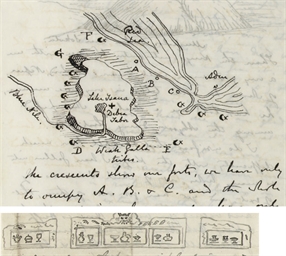 Red
Sea
F
A
G
B
Aden
C
Blue Nile
Lake Tsana
Debra
Tabor
D
Wala Galla
tribes
E
the crescents show our forts, we have only
to occupy A. B. & C. and the whole